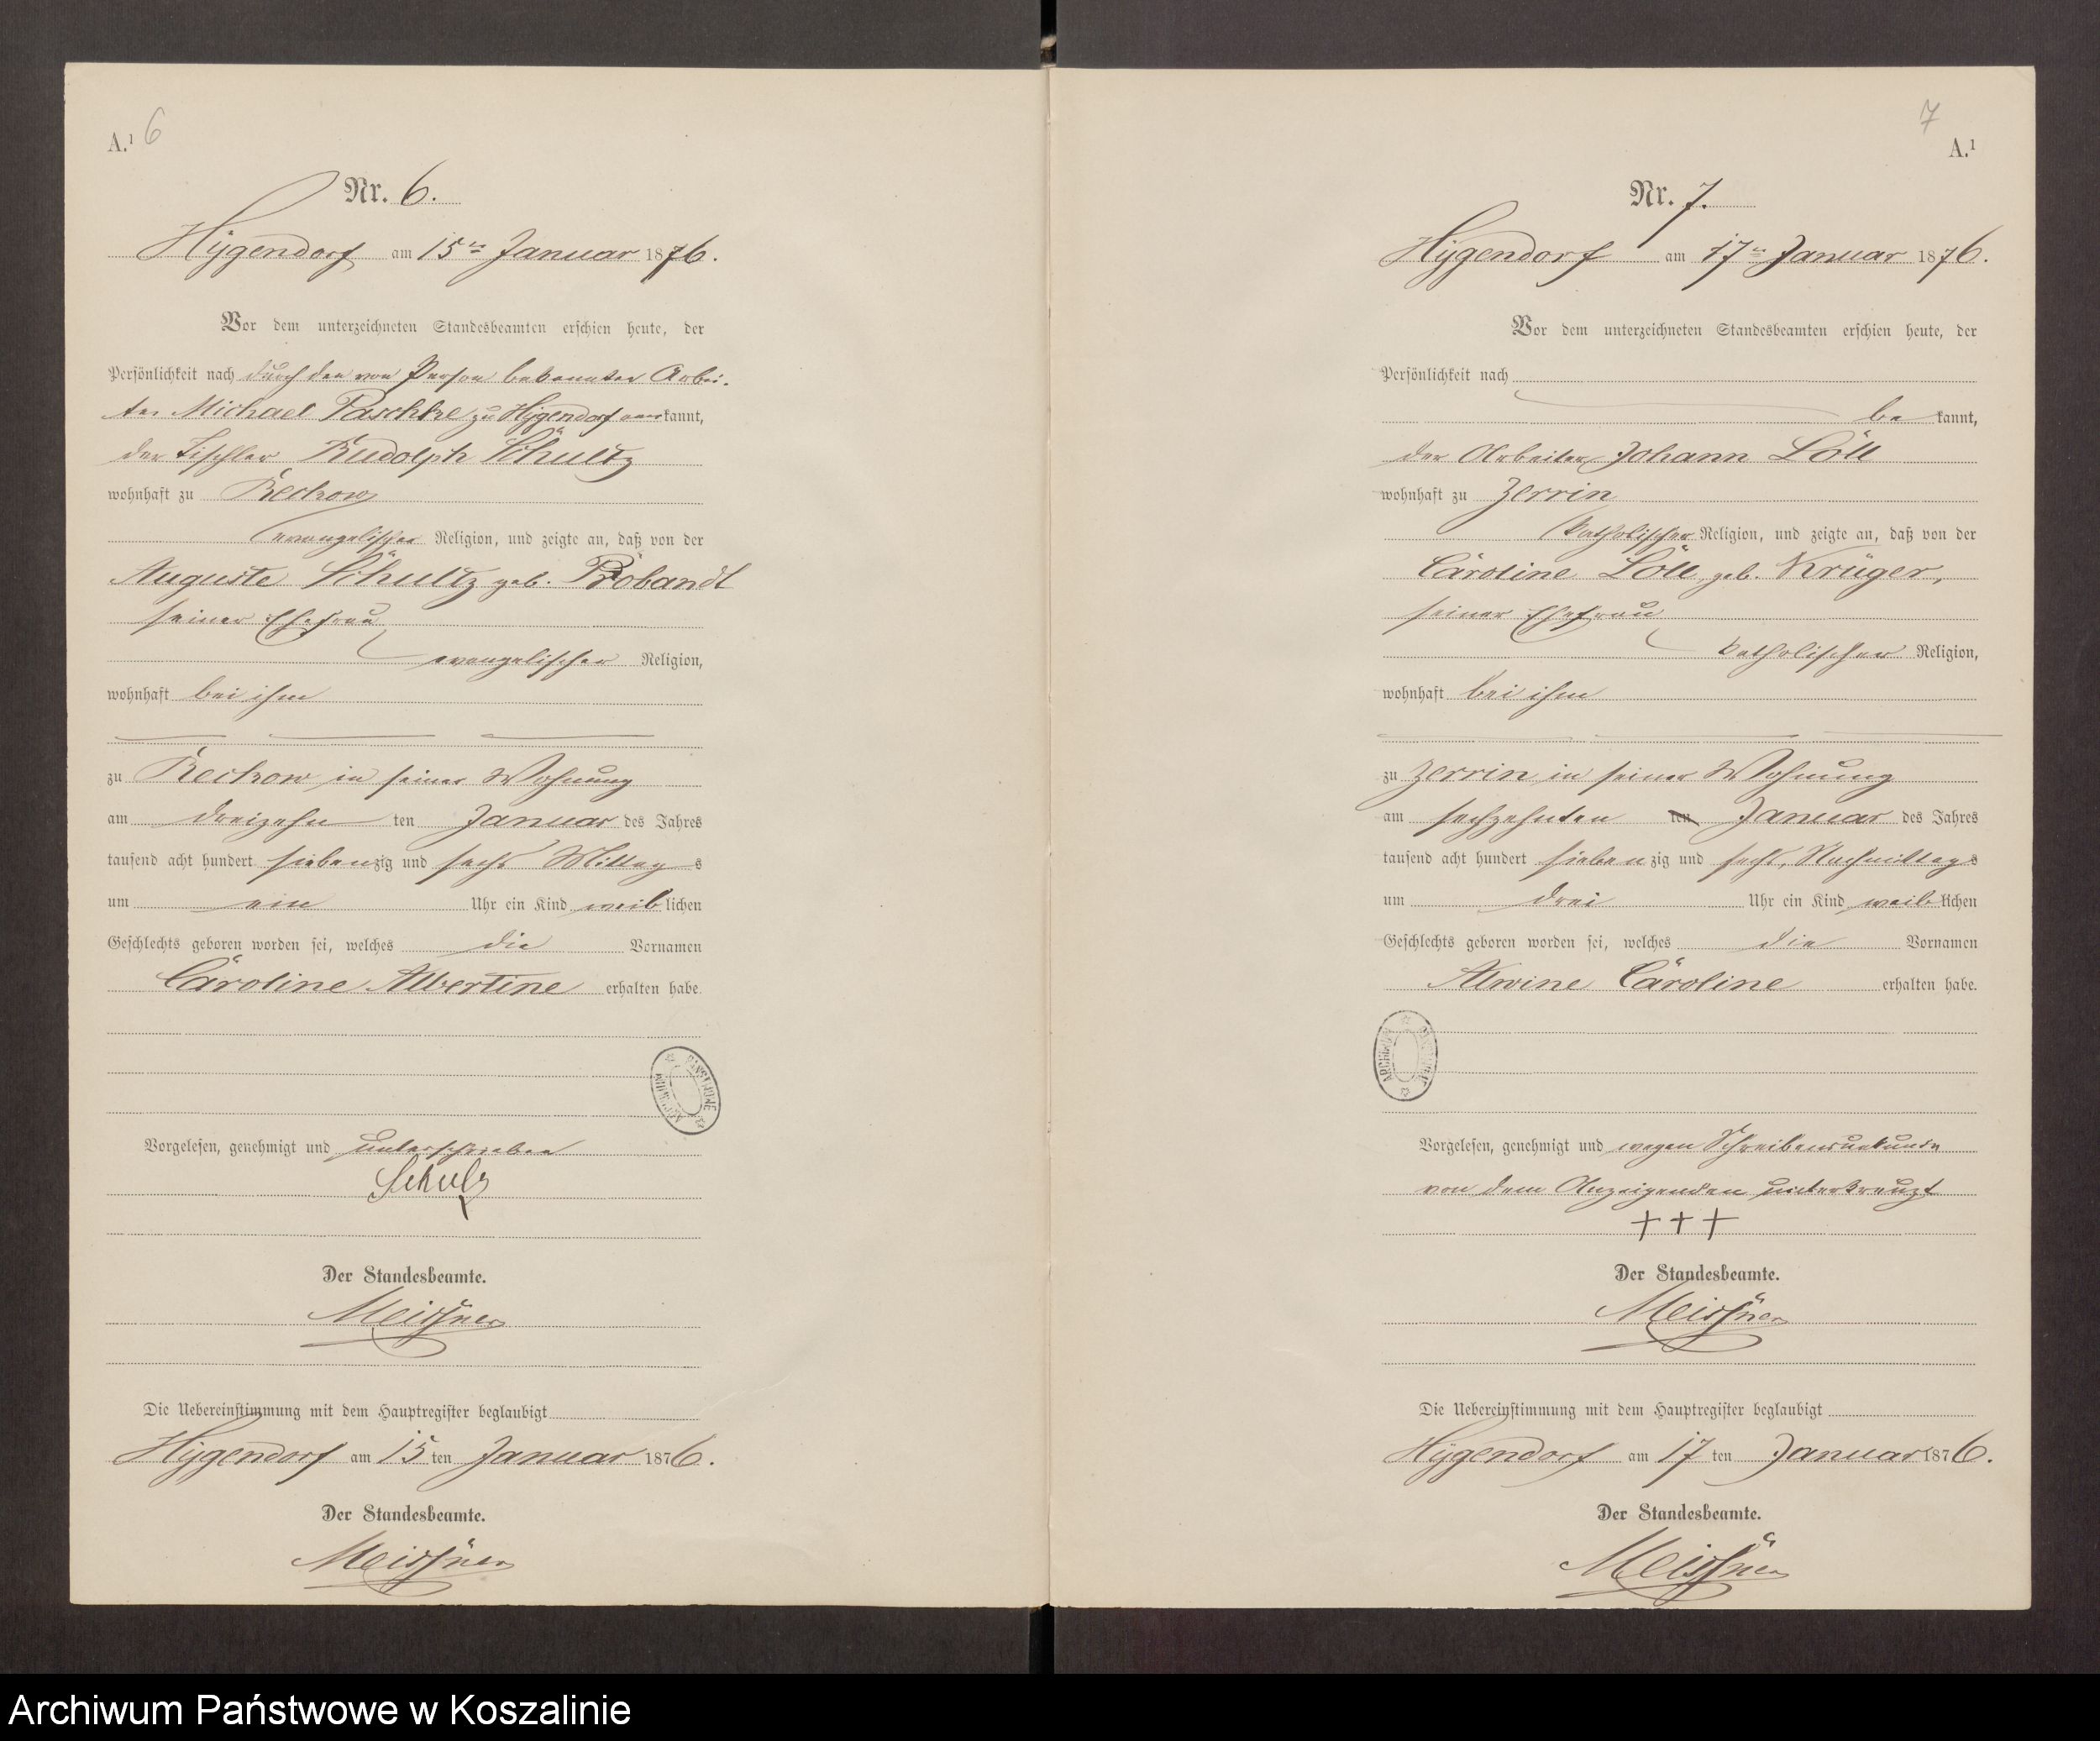 A.¹ 6
Nr. 6.
Hygendorf am 15ten Januar 1876.
Vor dem unterzeichneten Standesbeamten erschien heute, der
Persönlichkeit nach durch den von Person bekannten Arbei-
ter Michael Paschke zu Hygendorf anerkannt,
der Tischler Rudolph Schultz
wohnhaft zu Reckow
evangelischer Religion, und zeigte an, daß von der
Auguste Schultz geb. Probandt
seiner Ehefrau
evangelischer Religion,
wohnhaft bei ihm
zu Reckow in seiner Wohnung
am dreizehn ten Januar des Jahres
tausend acht hundert siebenzig und sechs Mittags
um ein Uhr ein Kind weiblichen
Geschlechts geboren worden sei, welches die Vornamen
Caroline Albertine erhalten habe.
ARCHIWUM PAŃSTWOWE
Vorgelesen, genehmigt und unterschrieben
Schulz
Der Standesbeamte.
Meissner
Die Uebereinstimmung mit dem Hauptregister beglaubigt
Hygendorf am 15 ten Januar 1876.
Der Standesbeamte.
Meissner
7
A.¹
Nr. 7.
Hygendorf am 17ten Januar 1876.
Vor dem unterzeichneten Standesbeamten erschien heute, der
Persönlichkeit nach
be kannt,
der Arbeiter Johann Löll
wohnhaft zu Zerrin
katholischer Religion, und zeigte an, daß von der
Caroline Löll geb. Krüger,
seiner Ehefrau
katholischer Religion,
wohnhaft bei ihm
zu Zerrin in seiner Wohnung
am sechzehnten ten Januar des Jahres
tausend acht hundert siebenzig und sechs, Nachmittags
um drei Uhr ein Kind weiblichen
Geschlechts geboren worden sei, welches die Vornamen
Alwine Caroline erhalten habe.
ARCHIWUM PAŃSTWOWE
Vorgelesen, genehmigt und wegen Schreibensunkunde
von dem Anzeigenden unterkreuzt
+ + +
Der Standesbeamte.
Meissner
Die Uebereinstimmung mit dem Hauptregister beglaubigt
Hygendorf am 17 ten Januar 1876.
Der Standesbeamte.
Meissner
Archiwum Państwowe w Koszalinie